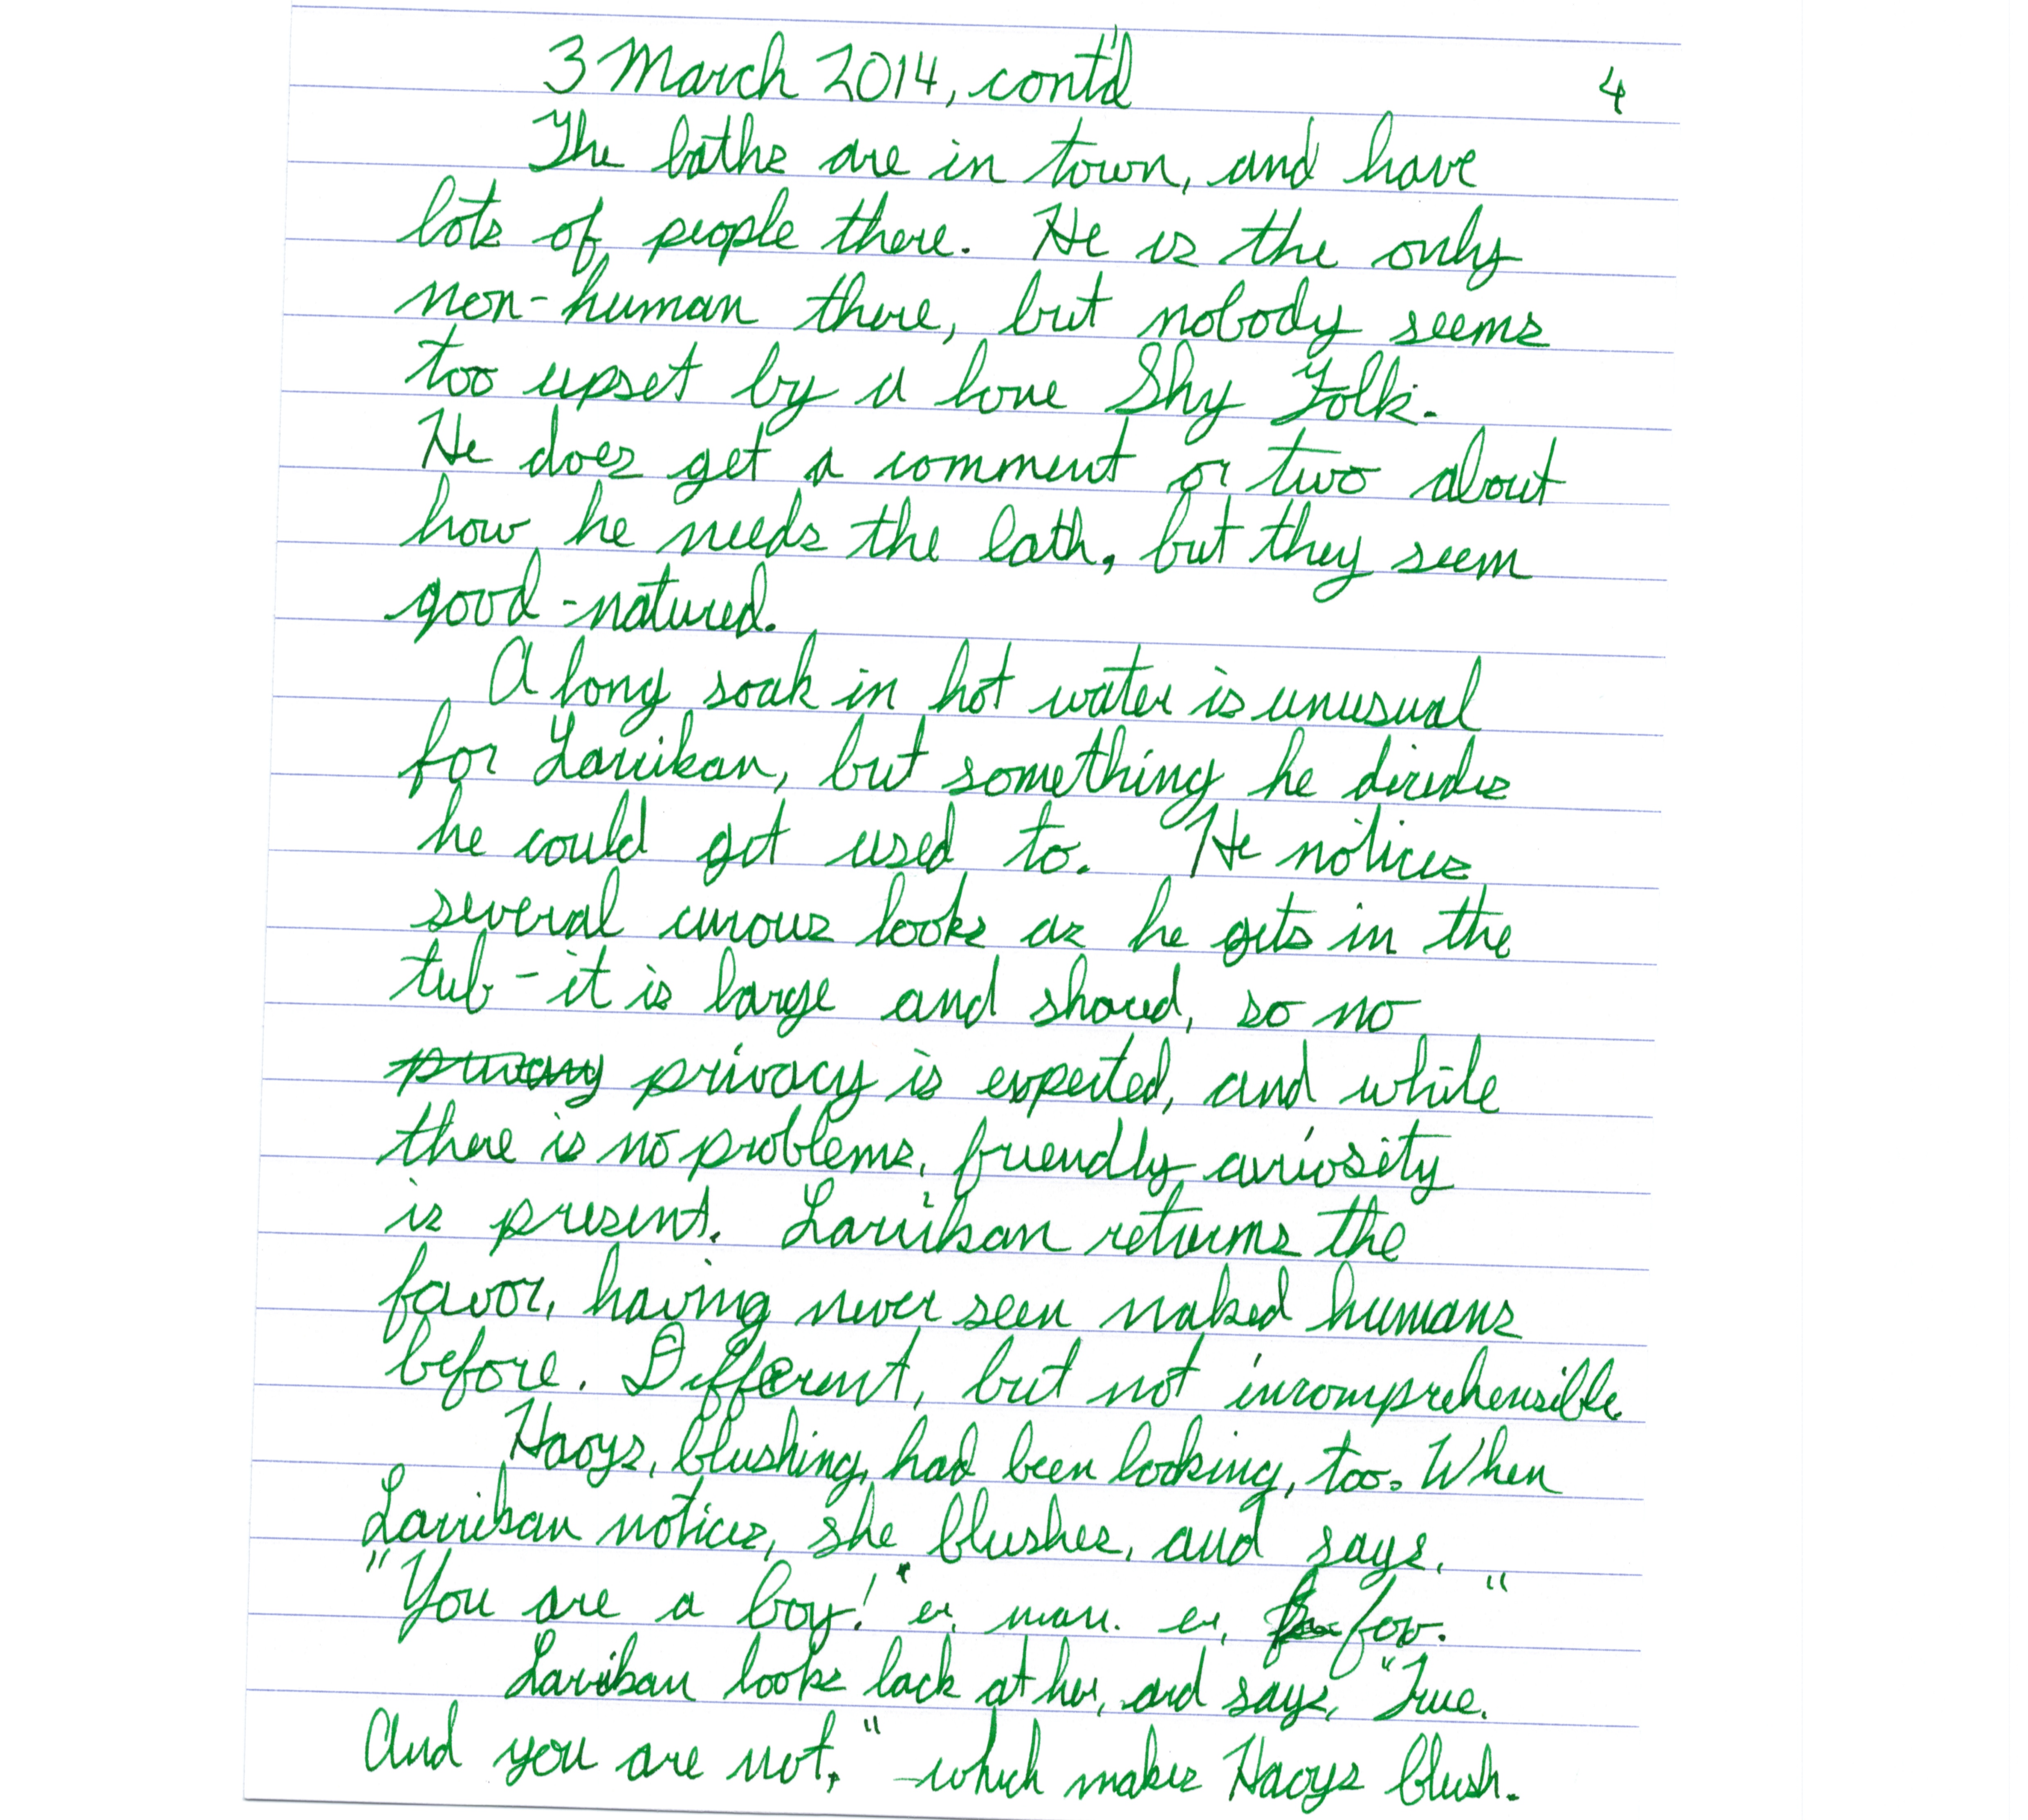 3 March 2014, cont'd 4
The baths are in town, and have
lots of people there. He is the only
non-human there, but nobody seems
too upset by a lone Shy Folk.
He does get a comment or two about
how he needs the bath, but they seem
good-natured.
A long soak in hot water is unusual
for Larrikan, but something he decides
he could get used to. He notices
several curous looks as he gets in the
tub - it is large and shared, so no
privacy privacy is expected, and while
there is no problems, friendly curiosity
is present. Larrikan returns the
favor, having never seen naked humans
before. Different, but not incomprehensible.
Haoys, blushing, had been looking, too. When
Larrikan notices, she blushes, and says,
"You are a boy!" er, man. er, fox."
Larrikan looks back at her, and says, "True.
And you are not," - which makes Haoys blush.